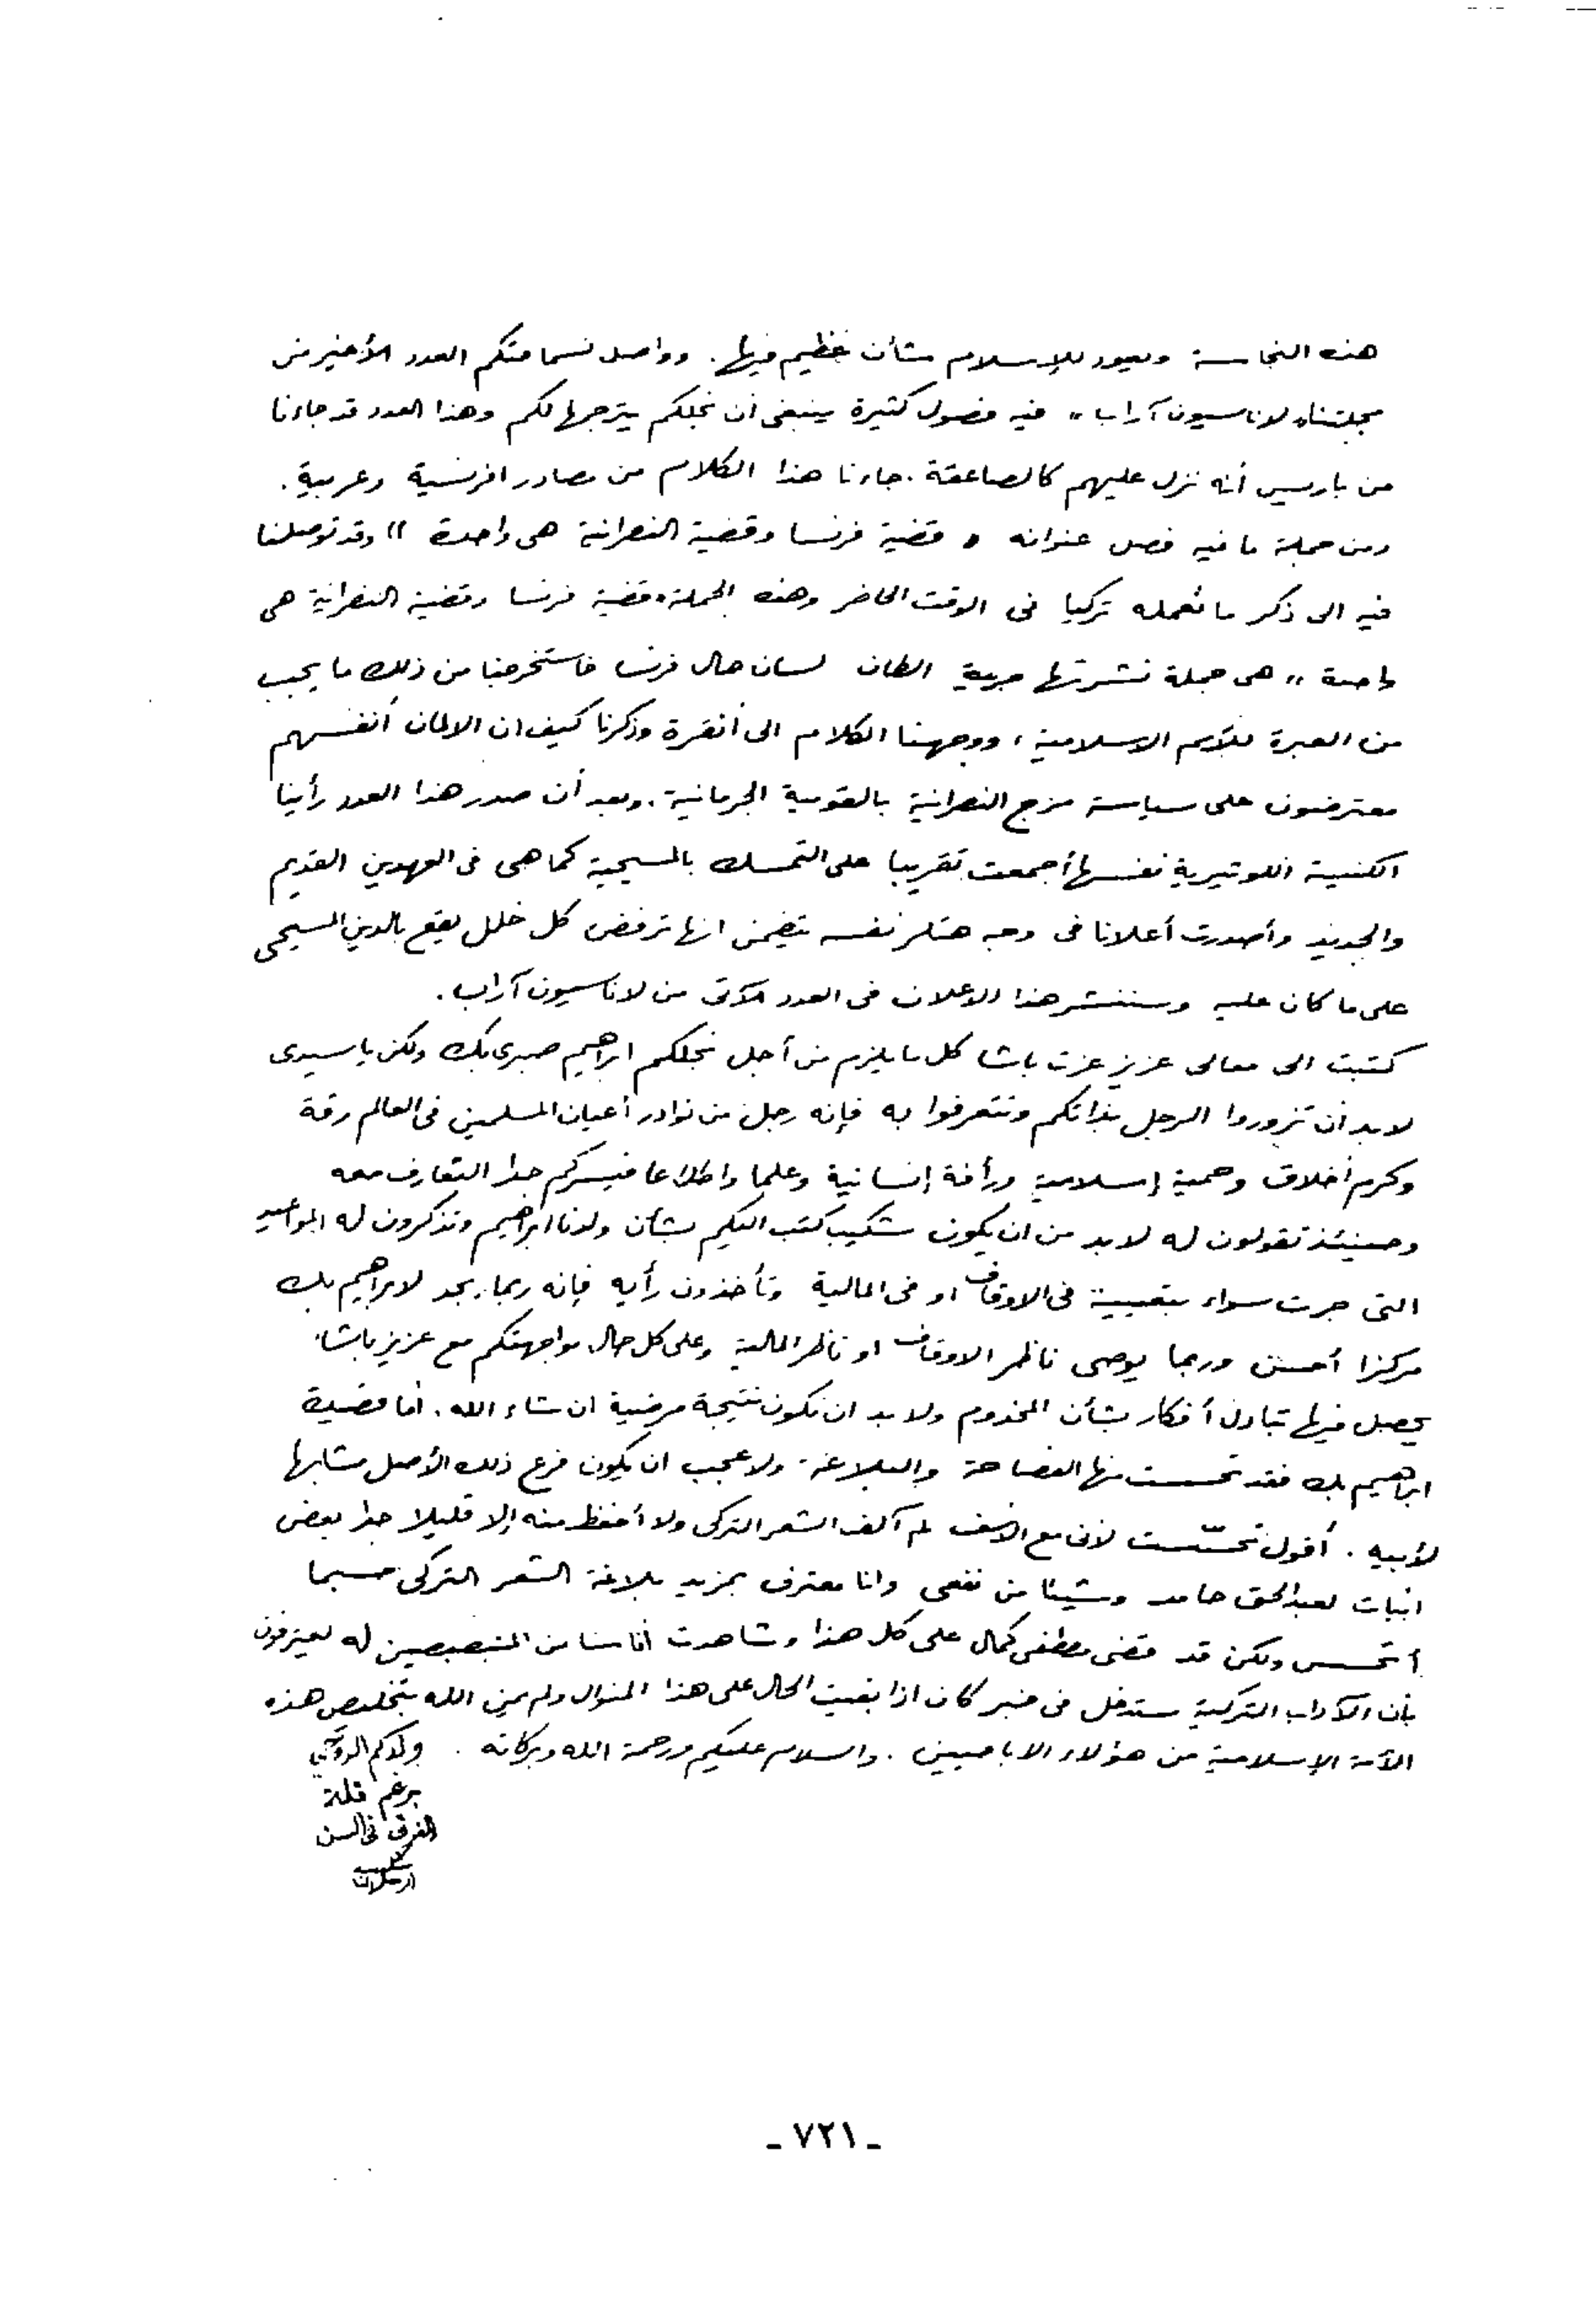 هذه النجاسة ويعود للإسلام شأن عظيم فيها. وواصل لسماحتكم العدد الأخير من
مجلتنا «لاناسيون آراب» فيه فصول كثيرة ينبغى أن نجلكم يترجمها لكم وهذا العدد قد جاءنا
من باريس أنه نزل عليهم كالصاعقة. جاءنا هذا الكلام من مصادر افرنسية وعربية.
ومن جملة ما فيه فصل عنوانه « قضية فرنسا وقضية النصرانية هى واحدة » وقد توصلنا
فيه الى ذكر ما تعمله تركيا فى الوقت الحاضر وهذه الجملة «قضية فرنسا وقضية النصرانية هى
واحدة » هى جملة نشرتها جريدة الطان لسان حال فرنسا فاستخرجنا من ذلك ما يجب
من العبرة للأمم الاسلامية، ووجهنا الكلام الى أنقرة وذكرنا كيف ان الالمان أنفسهم
معترضون على سياسة مزج النصرانية بالقومية الجرمانية. وبعد أن صدر هذا العدد رأينا
الكنيسة اللوتيرية نفسها أجمعت تقريبا على التمسك بالمسيحية كما هى فى العهدين القديم
والجديد وأصدرت أعلانا فى وجه هتلر نفسه يتضمن انها ترفض كل خلل يقع بالدين المسيحى
على ما كان عليه وسننشر هذا الاعلان فى العدد الآتى من لاناسيون آراب.
كتبت الى معالى عزيز عزت باشا كل ما يلزم من أجل نجلكم ابراهيم صبرى بك ولكن يا سيدى
لا بد أن تزوروا الرجل بذاتكم وتتعرفوا به فإنه رجل من نوادر أعيان المسلمين فى العالم رقة
وكرم أخلاق وحمية إسلامية ورأفة إنسانية وعلما واطلاعا فيسركم جدا التعارف معه
وحينئذ تقولون له لا بد من ان يكون شكيب كتب اليكم بشأن ولدنا ابراهيم وتذكرون له المواعيد
التى جرت سواء بتعيينه فى الاوقاف او فى المالية وتأخذون رأيه فإنه ربما يجد لابراهيم بك
مركزا أحسن وربما يوصى ناظر الاوقاف او ناظر المالية وعلى كل حال مواجهتكم مع عزيز باشا
يحصل فيها تبادل أفكار بشأن المخدوم ولا بد ان تكون نتيجة مرضية ان شاء الله. أما قصيدة
ابراهيم بك فقد تحسست منها الفصاحة والبلاغة ولا عجب ان يكون فرع ذلك الأصل مشابها
لأبيه. أقول تحسّست لأنى مع الاسف لم آلف الشعر التركى ولا أحفظ منه إلا قليلا جدا بعض
ابيات لعبد الحق حامد وشيئا من نفعى وانا معترف بمزيد بلاغة الشعر التركى حسبما
أتحسس ولكن قد قضى مصطفى كمال على كل هذا وشاهدت اناسا من المتبصبصين له يعترفون
بأن الآداب التركية ستدخل فى خبر كان اذا بقيت الحال على هذا المنوال ولم يمن الله بتخليص هذه
الأمة الإسلامية من هؤلاء الاباحيين. والسلام عليكم ورحمة الله وبركاته. ولدكم الروحى
برغم قلة
الفرق فى السن
شكيب
ارسلان
ـ ٧٢١ ـ